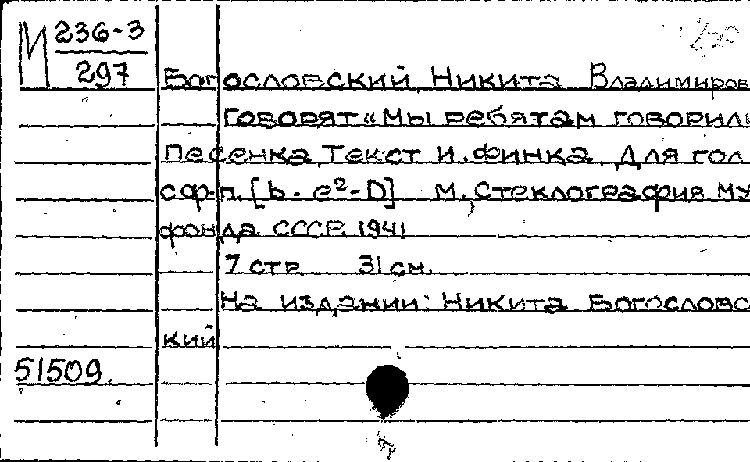 М 236-3
297
Богословский, Никита Владимиров
Говорят "Мы ребятам говорили
Песенка. Текст И. Финка. Для гол.
с ф-п. [b - e²-D] М., Стеклография Му
фонда СССР. 1941
7 стр 31 см.
На издании: Никита Богословс
кий
51509.